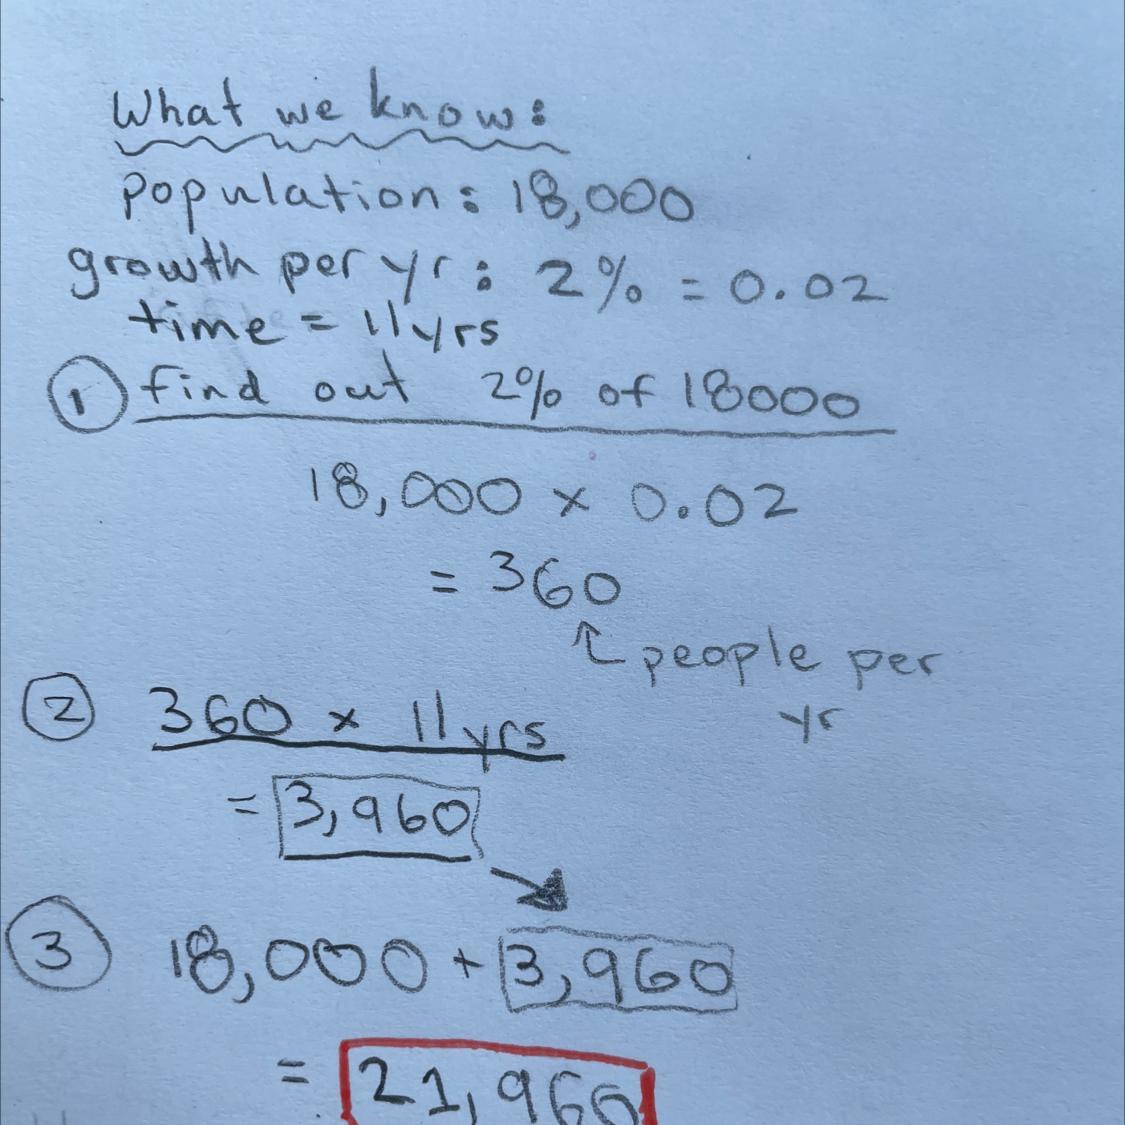 What we know:
population: 18,000
growth per yr: 2% = 0.02
time = 11yrs
① find out 2% of 18000
18,000 × 0.02
= 360
↑ people per
yr
② 360 × 11yrs
= 3,960
③ 18,000 + 3,960
= 21,960